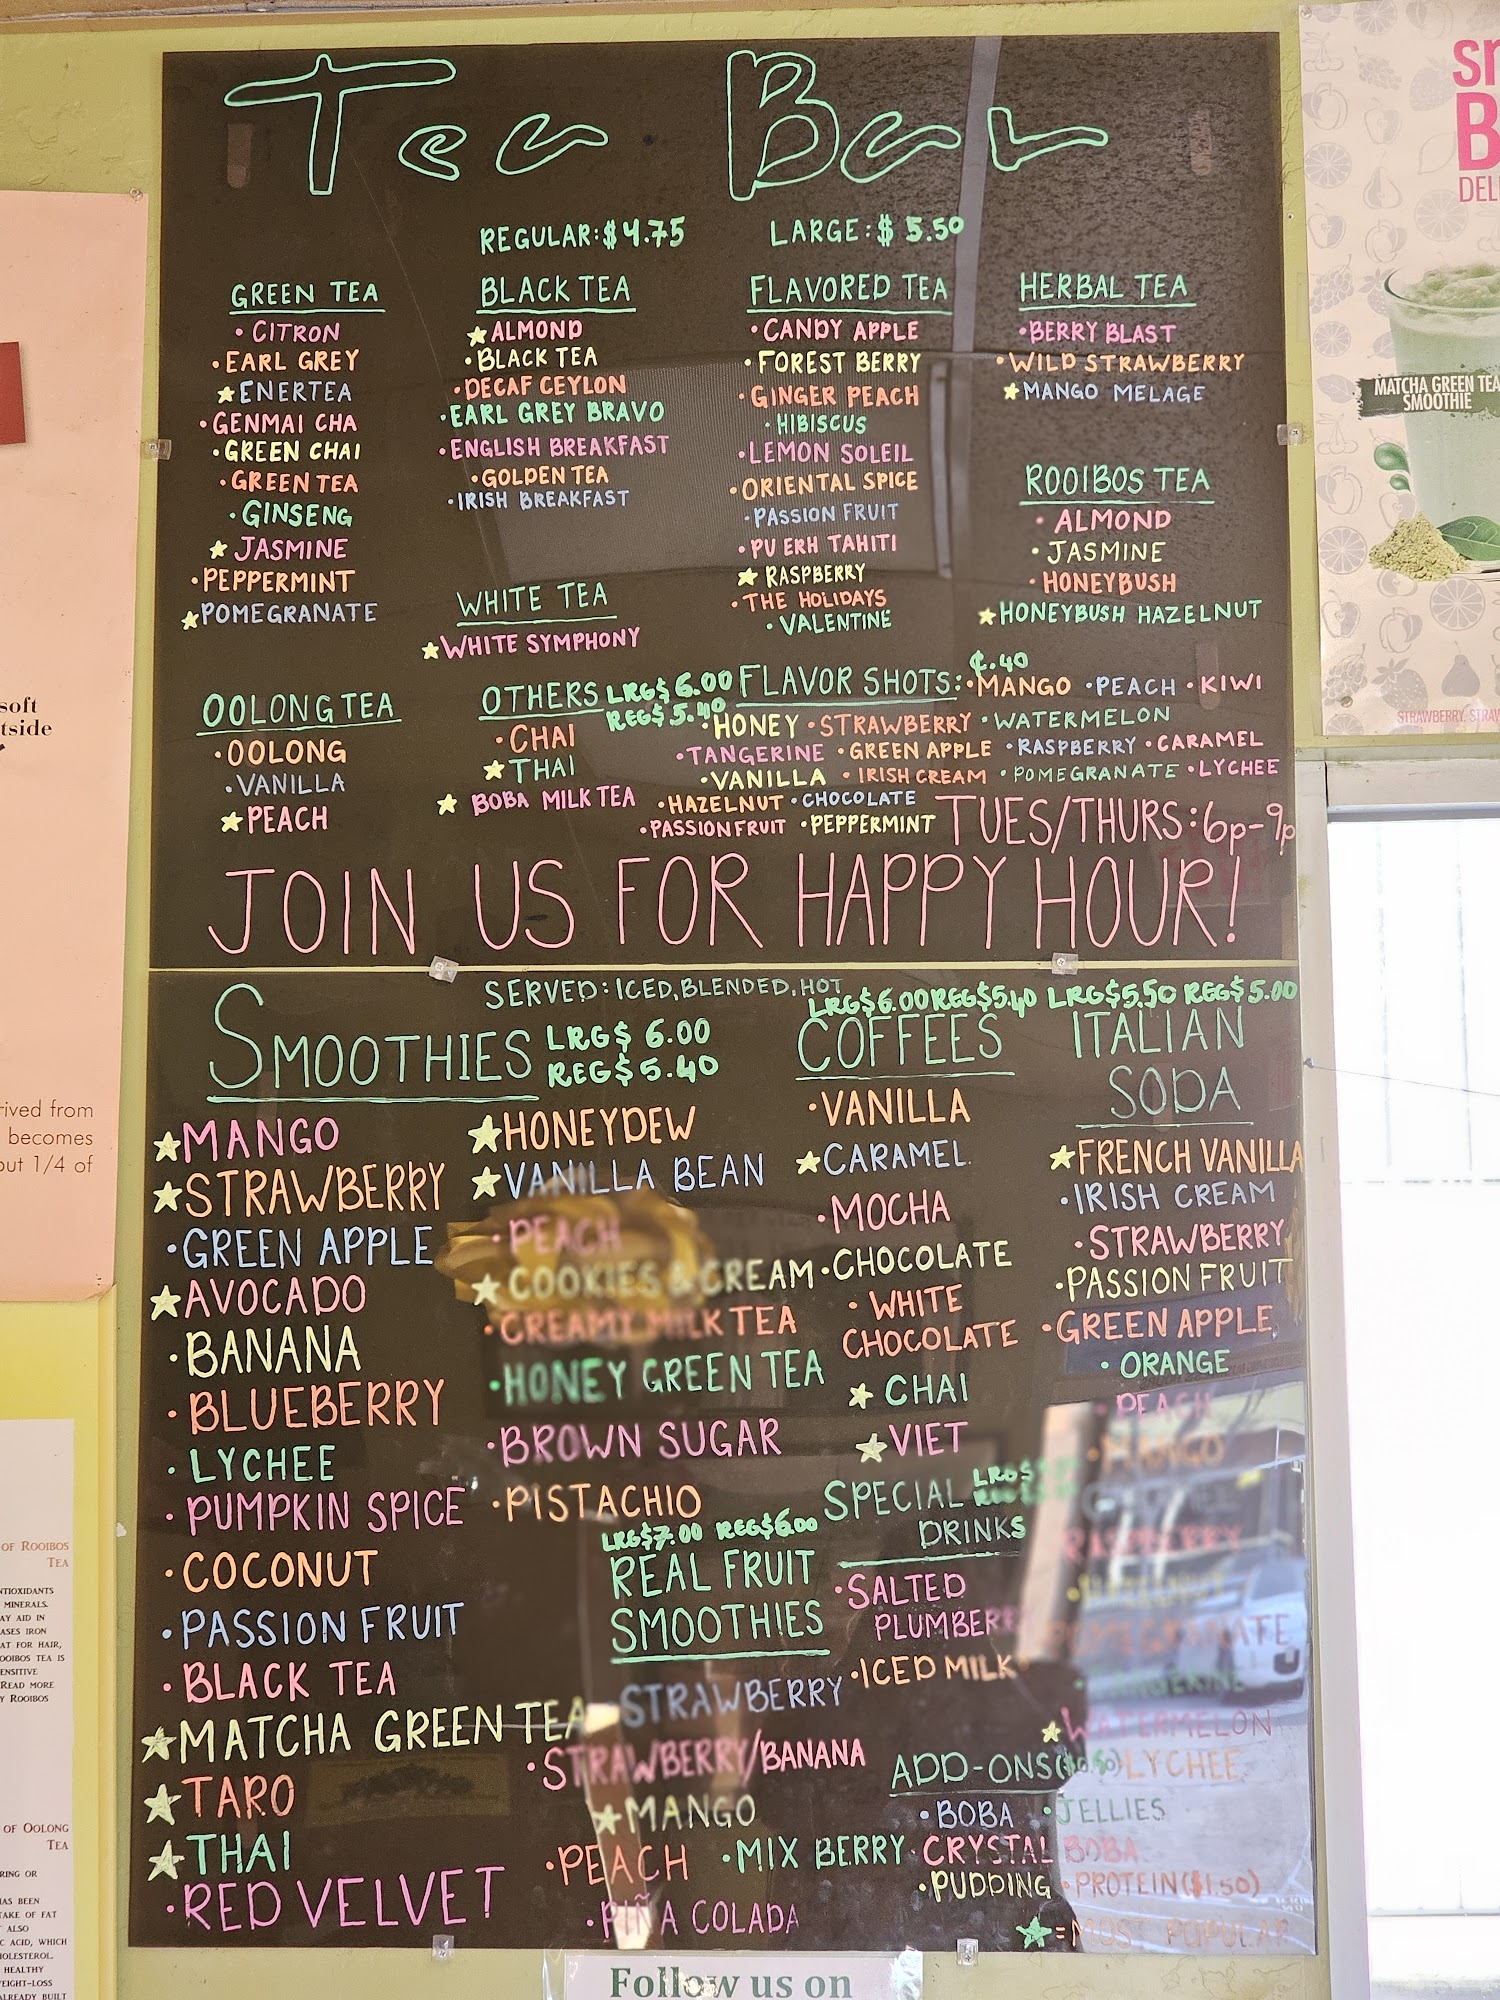 Tea Bar
REGULAR: $4.75 LARGE: $5.50
GREEN TEA
• CITRON
• EARL GREY
★ ENERTEA
• GENMAI CHA
• GREEN CHAI
• GREEN TEA
• GINSENG
★ JASMINE
• PEPPERMINT
★ POMEGRANATE
BLACK TEA
★ ALMOND
• BLACK TEA
• DECAF CEYLON
• EARL GREY BRAVO
• ENGLISH BREAKFAST
• GOLDEN TEA
• IRISH BREAKFAST
WHITE TEA
★ WHITE SYMPHONY
FLAVORED TEA
• CANDY APPLE
• FOREST BERRY
• GINGER PEACH
• HIBISCUS
• LEMON SOLEIL
• ORIENTAL SPICE
• PASSION FRUIT
• PU ERH TAHITI
★ RASPBERRY
• THE HOLIDAYS
• VALENTINE
HERBAL TEA
• BERRY BLAST
• WILD STRAWBERRY
★ MANGO MELAGE
ROOIBOS TEA
• ALMOND
• JASMINE
• HONEYBUSH
★ HONEYBUSH HAZELNUT
OOLONG TEA
• OOLONG
• VANILLA
★ PEACH
OTHERS LRG$ 6.00
REG$ 5.40
• CHAI
★ THAI
★ BOBA MILK TEA
FLAVOR SHOTS: ¢.40 • MANGO • PEACH • KIWI
• HONEY • STRAWBERRY • WATERMELON
• TANGERINE • GREEN APPLE • RASPBERRY • CARAMEL
• VANILLA • IRISH CREAM • POMEGRANATE • LYCHEE
• HAZELNUT • CHOCOLATE
• PASSION FRUIT • PEPPERMINT
TUES/THURS: 6p-9p
JOIN US FOR HAPPY HOUR!
SERVED: ICED, BLENDED, HOT
SMOOTHIES LRG$ 6.00
REG$ 5.40
★ MANGO
★ STRAWBERRY
• GREEN APPLE
★ AVOCADO
• BANANA
• BLUEBERRY
• LYCHEE
• PUMPKIN SPICE
• COCONUT
• PASSION FRUIT
• BLACK TEA
★ MATCHA GREEN TEA
★ TARO
★ THAI
• RED VELVET
★ HONEYDEW
★ VANILLA BEAN
• PEACH
★ COOKIES & CREAM
• CREAMY MILK TEA
• HONEY GREEN TEA
• BROWN SUGAR
• PISTACHIO
LRG$7.00 REG$6.00
REAL FRUIT
SMOOTHIES
• STRAWBERRY
• STRAWBERRY/BANANA
★ MANGO
• PEACH • MIX BERRY
• PIÑA COLADA
LRG$6.00 REG$5.40
COFFEES
• VANILLA
★ CARAMEL
• MOCHA
• CHOCOLATE
• WHITE
CHOCOLATE
★ CHAI
★ VIET
SPECIAL LRG$
DRINKS
• SALTED
PLUMBERRY
• ICED MILK
LRG$5.50 REG$5.00
ITALIAN
SODA
★ FRENCH VANILLA
• IRISH CREAM
• STRAWBERRY
• PASSION FRUIT
• GREEN APPLE
• ORANGE
• PEACH
• MANGO
RASPBERRY
POMEGRANATE
• TANGERINE
★ WATERMELON
LYCHEE
ADD-ONS
• BOBA • JELLIES
• CRYSTAL BOBA
• PUDDING • PROTEIN ($1.50)
★ = MOST POPULAR
Follow us on
MATCHA GREEN TEA
SMOOTHIE
soft
becomes
1/4 of
OF ROOIBOS
TEA
MINERALS.
OF OOLONG
TEA